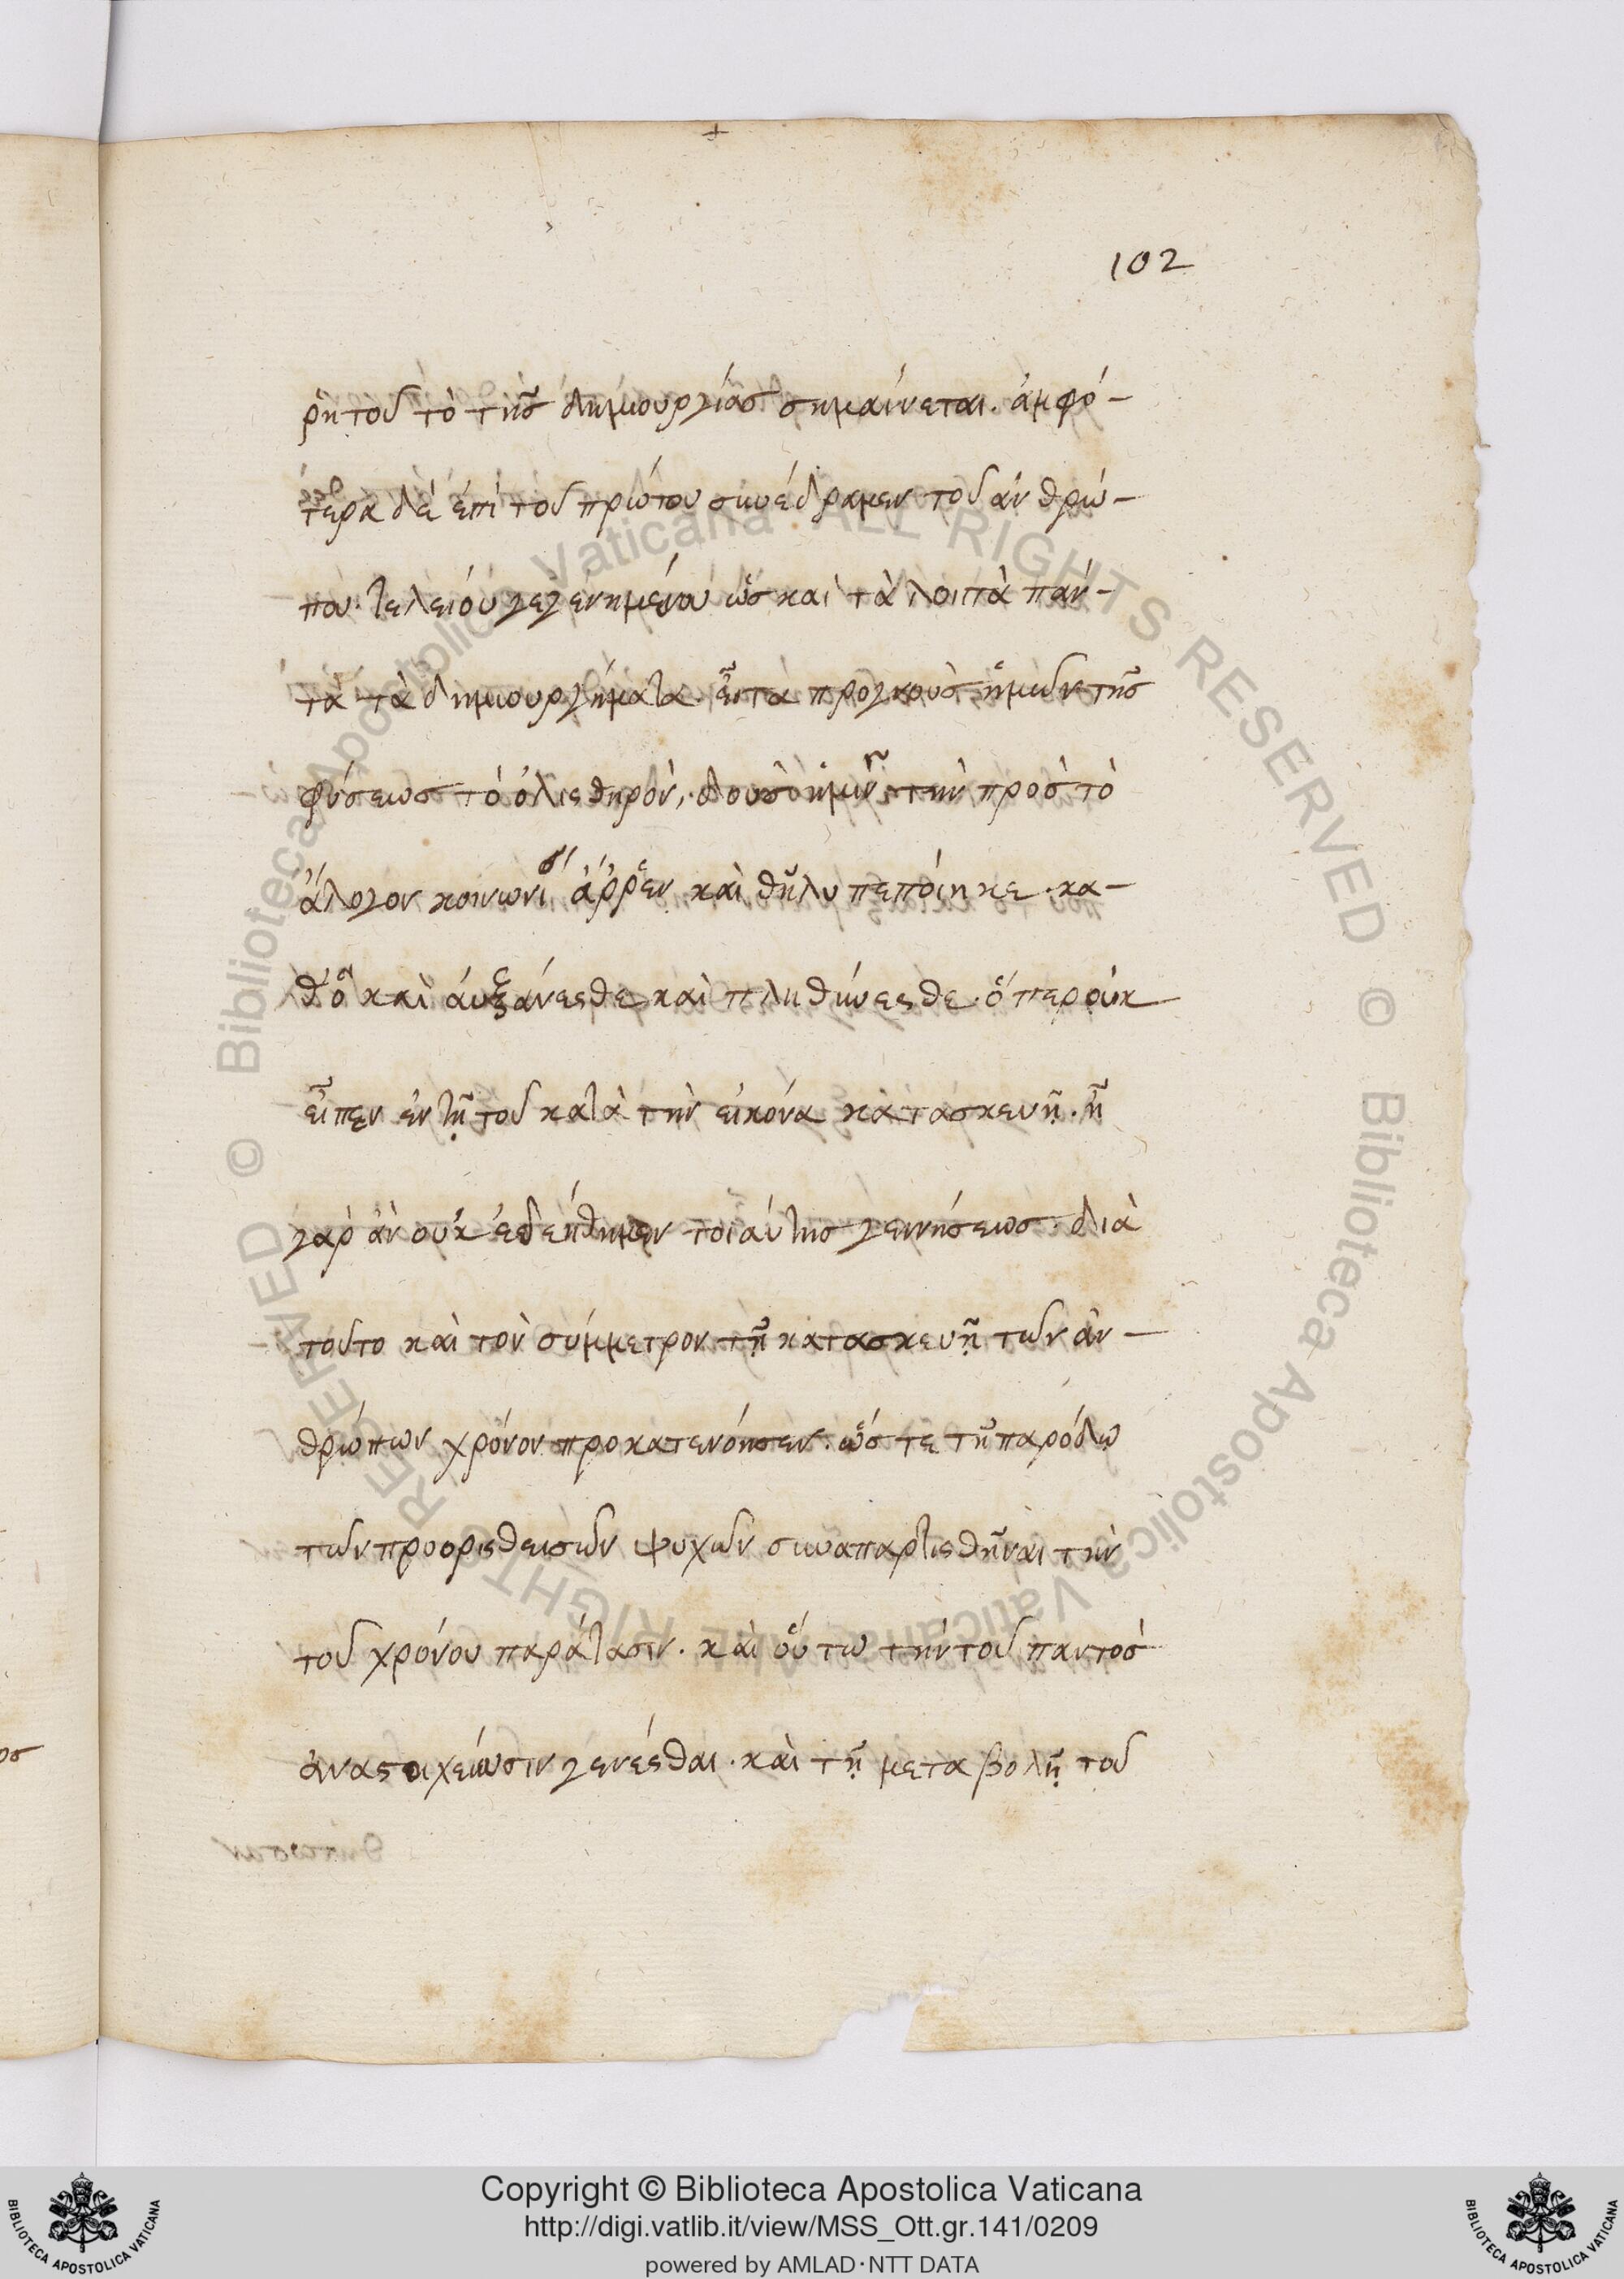 102
ῥητοῦ τὸ τῆς δημιουργίας σημαίνεται. ἀμφό-
τερα δὲ ἐπὶ τοῦ πρώτου συνέδραμεν τοῦ ἀνθρώ-
που. τελείου γεγενημένου ὡς καὶ τὰ λοιπὰ πάν-
τα τὰ δημιουργήματα. εἶτα προγνοὺς ἡμῶν τῆς
φύσεως τὸ ὀλισθηρόν, δοὺς ἡμῖν τὴν πρὸς τὸ
ἄλογον κοινωνί ἄρρεν καὶ θῆλυ πεποίηκε. κα-
θὸ καὶ αὐξάνεσθε καὶ πληθύνεσθε. ὅπερ οὐκ
εἶπεν ἐν τῇ τοῦ κατὰ τὴν εἰκόνα κατασκευῇ. ἦ
γὰρ ἂν οὐκ ἐδεήθημεν τοιαύτης γεννήσεως. διὰ
τοῦτο καὶ τὸν σύμμετρον τῇ κατασκευῇ τῶν ἀν-
θρώπων χρόνον προκατενόησεν. ὥστε τῇ παρόδῳ
τῶν προορισθεισῶν ψυχῶν συναπαρτισθῆναι τὴν
τοῦ χρόνου παράτασιν. καὶ οὕτω τὴν τοῦ παντὸς
ἀναστοιχείωσιν γενέσθαι. καὶ τῇ μεταβολῇ τοῦ
Copyright © Biblioteca Apostolica Vaticana
http://digi.vatlib.it/view/MSS_Ott.gr.141/0209
powered by AMLAD·NTT DATA
BIBLIOTECA APOSTOLICA VATICANA
BIBLIOTECA APOSTOLICA VATICANA
© Biblioteca Apostolica Vaticana ALL RIGHTS RESERVED
© Biblioteca Apostolica Vaticana ALL RIGHTS RESERVED